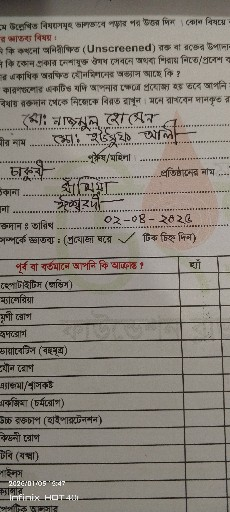 মে উল্লেখিত বিষয়সমূহ ভালভাবে পড়ার পর উত্তর দিন । কোন বিষয়ে
র জ্ঞাতব্য বিষয় :
কি কখনো অনিরীক্ষিত (Unscreened) রক্ত বা রক্তের উপাদান
কি কোন প্রকার নেশাযুক্ত ঔষধ সেবনে অথবা শিরায় নিতে/প্রবেশ ব
র একাধিক অরক্ষিত যৌনমিলনের অভ্যাস আছে কি ?
কারণগুলোর একটিও যদি আপনার ক্ষেত্রে প্রযোজ্য হয় তবে আপনি
বিধায় রক্তদান থেকে নিজেকে বিরত রাখুন : মনে রাখবেন দানকৃত র
মো: নাজমুল হোসেন
র নাম মো: আলী
পুরুষ/মহিলা
চাকুরী প্রতিষ্ঠানের নাম
কানা
না ঈশ্বরদী
ক্তদান : তারিখ ০২-০৪-২০২৫
সম্পর্কে জ্ঞাতব্য : (প্রযোজ্য ঘরে ✓ টিক চিহ্ন দিন)
পূর্ব বা বর্তমানে আপনি কি আক্রান্ত ? হ্যাঁ
হেপাটাইটিস (জন্ডিস)
ম্যালেরিয়া
মৃগী রোগ
হৃদরোগ
ডায়াবেটিস (বহুমূত্র)
যৌন রোগ
এ্যাজমা/শ্বাসকষ্ট
একজিমা (চর্মরোগ)
উচ্চ রক্তচাপ (হাইপারটেনশন)
কিডনী রোগ
টিবি (যক্ষ্মা)
পাইলস
ক্যান্সার
পেপটিক আলসার
Infinix HOT 40i